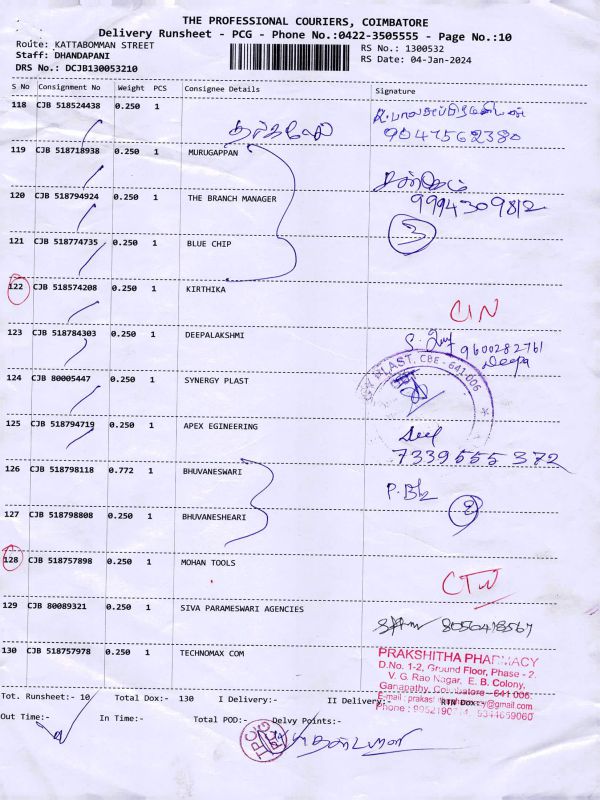 THE PROFESSIONAL COURIERS, COIMBATORE
Delivery Runsheet - PCG - Phone No.:0422-3505555 - Page No.:10
Route: KATTABOMMAN STREET
RS No.: 1300532
Staff: DHANDAPANI
RS Date: 04-Jan-2024
DRS No.: DCJB130053210
S No Consignment No Weight PCS Consignee Details Signature
118 CJB 518524438 0.250 1
9047562380
119 CJB 518718938 0.250 1 MURUGAPPAN
120 CJB 518794924 0.250 1 THE BRANCH MANAGER
9994309812
3
121 CJB 518774735 0.250 1 BLUE CHIP
122 CJB 518574208 0.250 1 KIRTHIKA
CIN
123 CJB 518784303 0.250 1 DEEPALAKSHMI
9600282761
Deepa
124 CJB 80005447 0.250 1 SYNERGY PLAST
PLAST, CBE - 641 006
125 CJB 518794719 0.250 1 APEX EGINEERING
7339555372
126 CJB 518798118 0.772 1 BHUVANESWARI
2
127 CJB 518798808 0.250 1 BHUVANESHEARI
128 CJB 518757898 0.250 1 MOHAN TOOLS
129 CJB 80089321 0.250 1 SIVA PARAMESWARI AGENCIES
130 CJB 518757978 0.250 1 TECHNOMAX COM
PRAKSHITHA PHARMACY
D.No. 1-2, Ground Floor, Phase - 2.
V. G. Rao Nagar, E. B. Colony,
Ganapathy, Coimbatore - 641 006.
Tot. Runsheet:- 10 Total Dox:- 130 I Delivery:- II Delivery:- RTN Dox:-
Out Time:- In Time:- Total POD:- Delvy Points:-